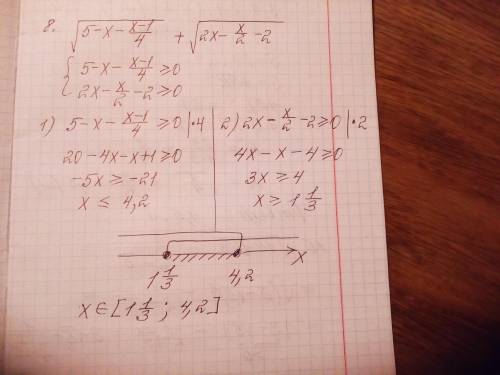 8. √(5-x-(x-1)/4) + √(2x-x/2-2)
{ 5-x-(x-1)/4 ≥0
2x-x/2-2≥0
1) 5-x-(x-1)/4 ≥0 |·4
20-4x-x+1≥0
-5x ≥ -21
x ≤ 4,2
2) 2x-x/2-2≥0 |·2
4x-x-4≥0
3x ≥ 4
x ≥ 1 1/3
1 1/3 4,2 x
x∈[1 1/3 ; 4,2]